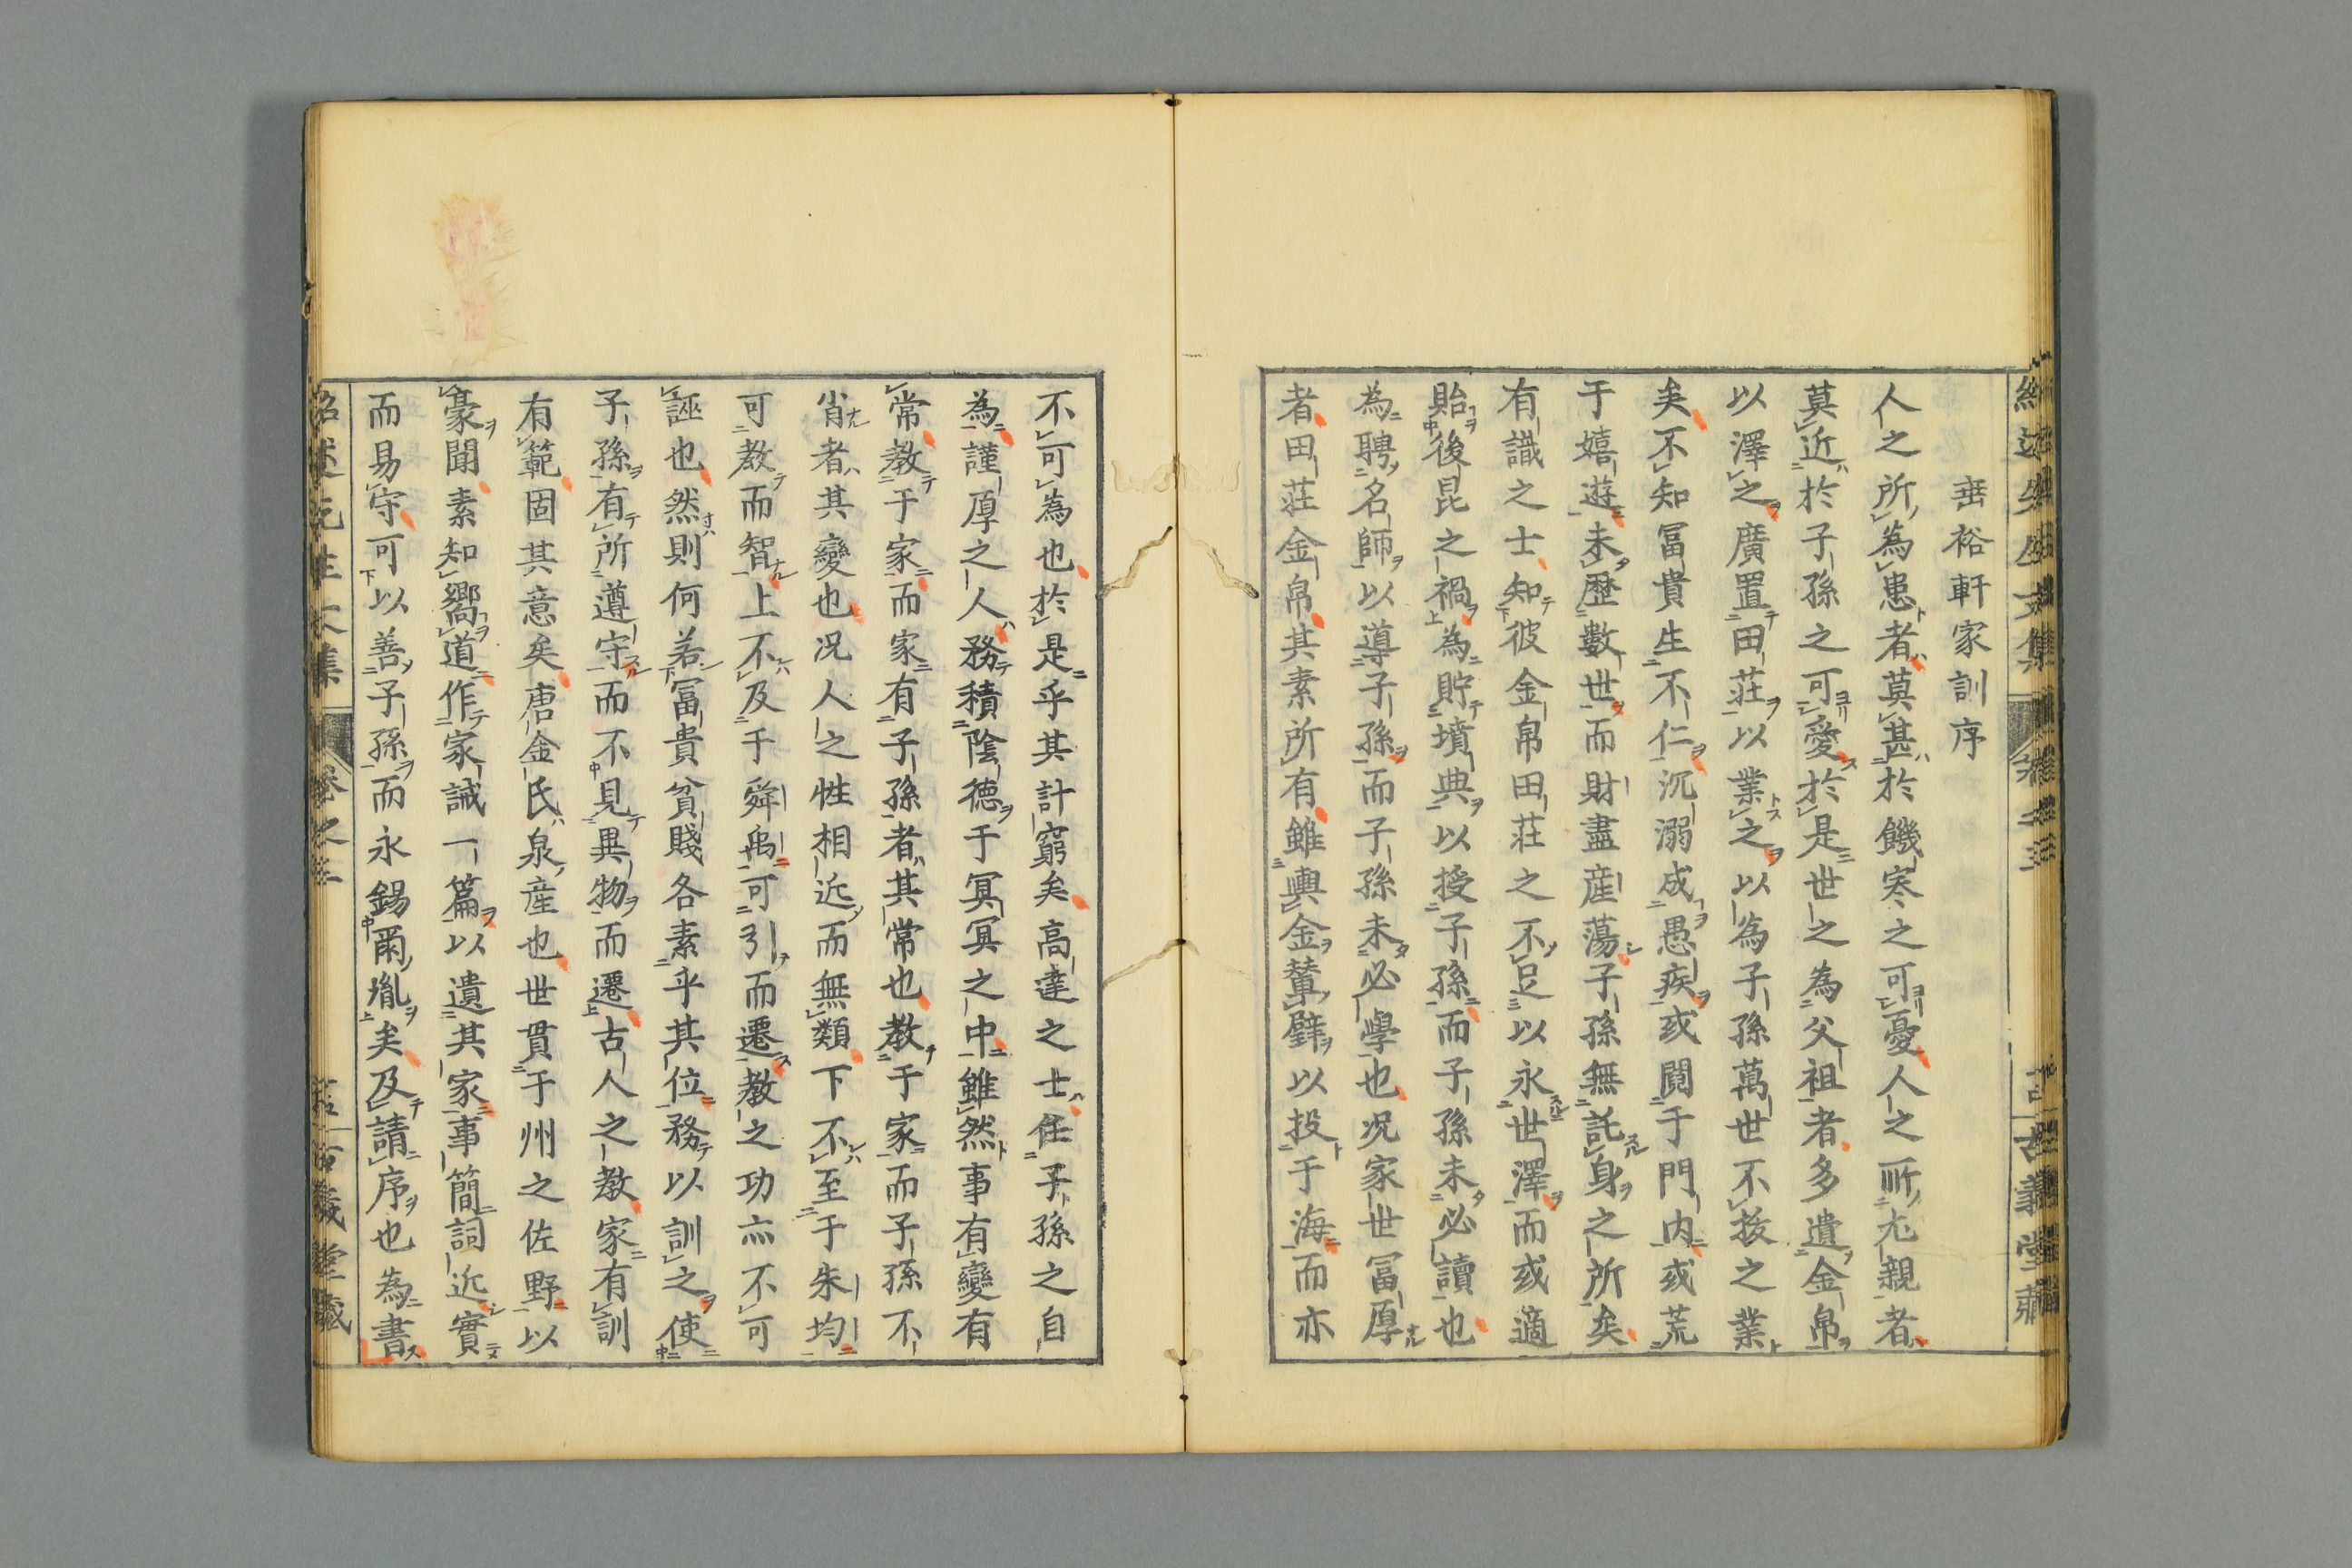 垂裕軒家訓序
人之所為患者莫甚於饑寒之可憂人之所尤親者
莫近於子孫之可愛於是世之為父祖者多遺金帛
以澤之廣置田莊以業之以為子孫萬世不拔之業
矣不知冨貴生不仁沉溺成愚疾或鬩于門内或荒
于嬉遊未歷數世而財盡産蕩子孫無託身之所矣
有識之士知彼金帛田莊之不足以永世澤而或適
貽後昆之禍為貯墳典以授子孫而子孫未必讀也
為聘名師以導子孫而子孫未必學也况家世冨厚
者田莊金帛其素所有雖輿金輦璧以投于海而亦
不可為也於是乎其計窮矣高達之士任子孫之自
為謹厚之人務積陰德于冥冥之中雖然事有變有
常教于家而家有子孫者其常也教于家而子孫不
肖者其變也况人之性相近而無類下不至于朱均
可教而智上不及于舜禹可引而遷教之功亦不可
誣也然則何若冨貴貧賤各素乎其位務以訓之使
子孫有所遵守而不見異物而遷古人之教家有訓
有範固其意矣唐金氏泉産也世貫于州之佐野以
豪聞素知嚮道作家誡一篇以遺其家事簡詞近實
而易守可以善子孫而永錫爾胤矣及請序也為書
紹述先生文集
古義堂藏
紹述先生文集 卷之三
古義堂藏